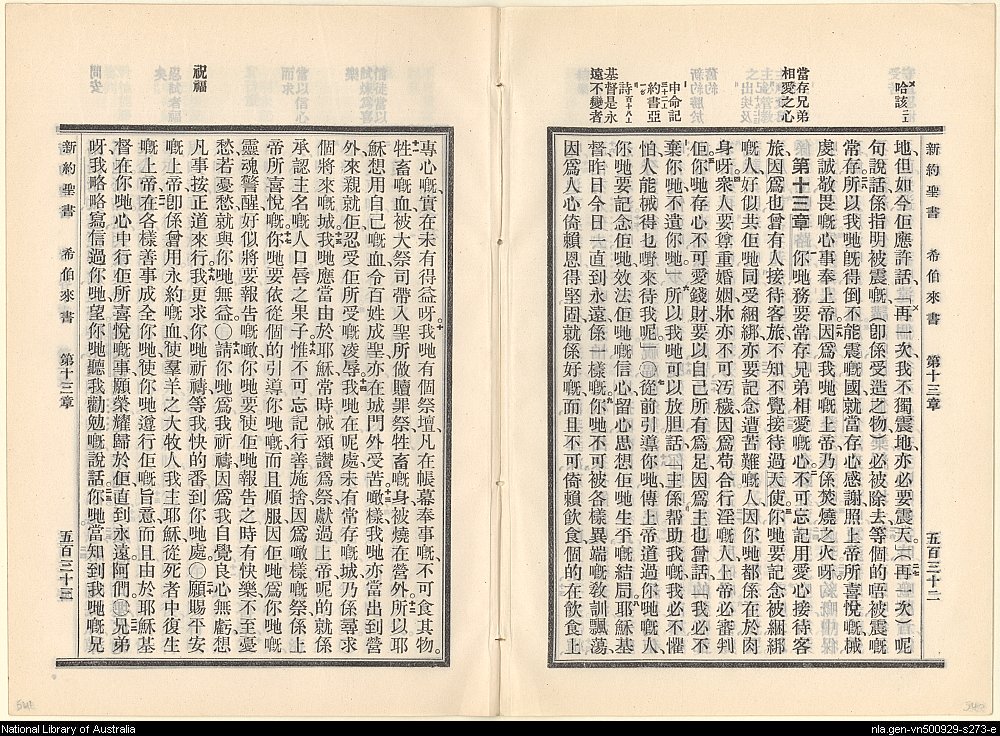 哈該二章
當存兄弟
相愛之心
申命記
約書亞
詩百十八
基督是永
遠不變者
新約聖書 希伯來書 第十三章 五百三十二
地、但如今佢應許話、「再一次我不獨震地、亦必要震天」「再一次」呢
句說話係指明被震嘅、(卽係受造之物)必被除去、等個的唔被震嘅
常存。所以我哋旣得倒不能震嘅國、就當存心感謝、照上帝所喜悅嘅、械
虔誠敬畏嘅心事奉上帝、因爲我哋嘅上帝、乃係焚燒之火呀。
第十三章 你哋務要常存兄弟相愛嘅心。不可忘記用愛心接待客
旅、因爲也曾有人接待客旅、不知不覺接待過天使。你哋要記念被綑綁
嘅人、好似共佢哋同受綑綁、亦要記念遭苦難嘅人、因你哋都係在於肉
身呀。衆人要尊重婚姻、牀亦不可汚穢、因爲苟合行淫嘅人、上帝必審判
佢。你哋存心不可愛錢財、要以自己所有爲足、因爲主也曾話、「我必不
棄你哋、不遺你哋」所以我哋可以放胆話、「主係帮助我嘅、我必不懼
怕、人能械得乜嘢來待我呢」○從前引導你哋、傳上帝道過你哋嘅人、
你哋要記念佢哋、效法佢哋嘅信心、留心思想佢哋生平嘅結局。耶穌基
督昨日今日一直到永遠、係一樣嘅。你哋不可被各樣異端嘅敎訓飄蕩、
因爲人心倚賴恩得堅固、就係好嘅、而且不可倚賴飮食、個的在飮食上
專心嘅、實在未有得益呀。我哋有個祭壇、凡在帳幕奉事嘅、不可食其物。
牲畜嘅血、被大祭司帶入聖所做贖罪祭、牲畜嘅身、被燒在營外。所以耶
穌想用自己嘅血、令百姓成聖、亦在城門外受苦。噉樣我哋亦當出到營
外來親就佢、忍受佢所受嘅凌辱。我哋在呢處未有常存嘅城、乃係尋求
個將來嘅城。我哋應當由於耶穌常時械頌讚爲祭獻過上帝、呢的就係
承認主名嘅人口唇之果子。惟不可忘記行善施捨、因爲噉樣嘅祭、係上
帝所喜悅嘅。你哋要依從個的引導你哋嘅、而且順服、因佢哋爲你哋嘅
靈魂警醒、好似將要報告嘅噉、你哋要使佢哋報告之時有快樂、不至憂
愁、若憂愁就與你哋無益。○請你哋爲我哋祈禱、因爲我自覺良心無虧、想
凡事按正道來行。我更求你哋祈禱、等我快的番到你哋處。○願賜平安
嘅上帝、卽係曾用永約嘅血、使羣羊之大牧人我主耶穌從死者中復生
嘅上帝、在各樣善事成全你哋、使你哋遵行佢嘅旨意、而且由於耶穌基
督、在你哋心中行佢所喜悅嘅事、願榮耀歸於佢、直到永遠、阿們。○兄弟
呀、我略略寫信過你哋、望你哋聽我勸勉嘅說話。你哋當知到我哋嘅兄
新約聖書 希伯來書 第十三章 五百三十三
祝福
問安
National Library of Australia
nla.gen-vn500929-s273-e